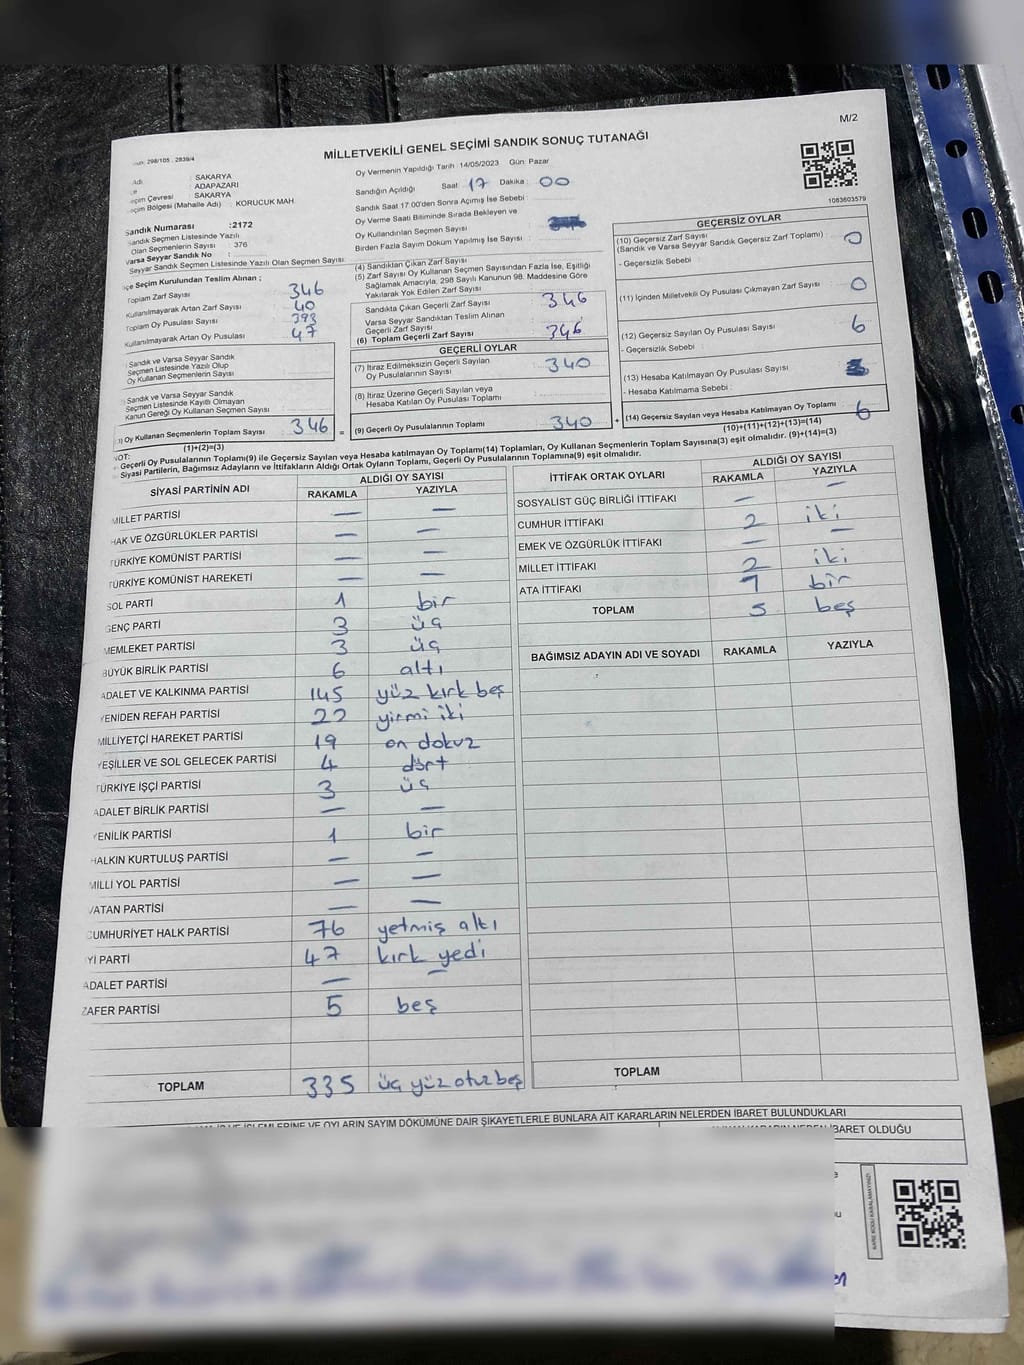 M/2
MİLLETVEKİLİ GENEL SEÇİMİ SANDIK SONUÇ TUTANAĞI
298/105 . 2839/4
Adı : SAKARYA
: ADAPAZARI
eçim Çevresi : SAKARYA
eçim Bölgesi (Mahalle Adı) : KORUCUK MAH.
Sandık Numarası :2172
Sandık Seçmen Listesinde Yazılı
Olan Seçmenlerin Sayısı : 376
Varsa Seyyar Sandık No :
Seyyar Sandık Seçmen Listesinde Yazılı Olan Seçmen Sayısı:
Oy Vermenin Yapıldığı Tarih :14/05/2023 Gün: Pazar
Sandığın Açıldığı Saat: 17 Dakika : 00
Sandık Saat 17:00'den Sonra Açımış İse Sebebi :
Oy Verme Saati Bitiminde Sırada Bekleyen ve
Oy Kullandırılan Seçmen Sayısı
Birden Fazla Sayım Döküm Yapılmış İse Sayısı :
1083603579
çe Seçim Kurulundan Teslim Alınan ;
Toplam Zarf Sayısı 346
Kullanılmayarak Artan Zarf Sayısı 40
Toplam Oy Pusulası Sayısı 393
Kullanılmayarak Artan Oy Pusulası 47
) Sandık ve Varsa Seyyar Sandık
Seçmen Listesinde Yazılı Olup
Oy Kullanan Seçmenlerin Sayısı
) Sandık ve Varsa Seyyar Sandık
Seçmen Listesinde Kayıtlı Olmayan
Kanun Gereği Oy Kullanan Seçmen Sayısı
3) Oy Kullanan Seçmenlerin Toplam Sayısı 346 =
(1)+(2)=(3)
(4) Sandıktan Çıkan Zarf Sayısı
(5) Zarf Sayısı Oy Kullanan Seçmen Sayısından Fazla İse, Eşitliği
Sağlamak Amacıyla, 298 Sayılı Kanunun 98. Maddesine Göre
Yakılarak Yok Edilen Zarf Sayısı
Sandıkta Çıkan Geçerli Zarf Sayısı 346
Varsa Seyyar Sandıktan Teslim Alınan
Geçerli Zarf Sayısı
(6) Toplam Geçerli Zarf Sayısı 346
GEÇERLİ OYLAR
(7) İtiraz Edilmeksizin Geçerli Sayılan
Oy Pusulalarının Sayısı 340
(8) İtiraz Üzerine Geçerli Sayılan veya
Hesaba Katılan Oy Pusulası Toplamı
(9) Geçerli Oy Pusulalarının Toplamı 340 +
GEÇERSİZ OYLAR
(10) Geçersiz Zarf Sayısı
(Sandık ve Varsa Seyyar Sandık Geçersiz Zarf Toplamı) 0
- Geçersizlik Sebebi :
(11) İçinden Milletvekili Oy Pusulası Çıkmayan Zarf Sayısı 0
(12) Geçersiz Sayılan Oy Pusulası Sayısı 6
- Geçersizlik Sebebi :
(13) Hesaba Katılmayan Oy Pusulası Sayısı
- Hesaba Katılmama Sebebi :
(14) Geçersiz Sayılan veya Hesaba Katılmayan Oy Toplamı 6
(10)+(11)+(12)+(13)=(14)
NOT:
Geçerli Oy Pusulalarının Toplamı(9) ile Geçersiz Sayılan veya Hesaba katılmayan Oy Toplamı(14) Toplamları, Oy Kullanan Seçmenlerin Toplam Sayısına(3) eşit olmalıdır. (9)+(14)=(3)
Siyasi Partilerin, Bağımsız Adayların ve İttifakların Aldığı Ortak Oyların Toplamı, Geçerli Oy Pusulalarının Toplamına(9) eşit olmalıdır.
SİYASİ PARTİNİN ADI ALDIĞI OY SAYISI
RAKAMLA YAZIYLA
MİLLET PARTİSİ — —
HAK VE ÖZGÜRLÜKLER PARTİSİ — —
TÜRKİYE KOMÜNİST PARTİSİ — —
TÜRKİYE KOMÜNİST HAREKETİ — —
SOL PARTİ 1 bir
GENÇ PARTİ 3 üç
MEMLEKET PARTİSİ 3 üç
BÜYÜK BİRLİK PARTİSİ 6 altı
ADALET VE KALKINMA PARTİSİ 145 yüz kırk beş
YENİDEN REFAH PARTİSİ 22 yirmi iki
MİLLİYETÇİ HAREKET PARTİSİ 19 on dokuz
YEŞİLLER VE SOL GELECEK PARTİSİ 4 dört
TÜRKİYE İŞÇİ PARTİSİ 3 üç
ADALET BİRLİK PARTİSİ — —
YENİLİK PARTİSİ 1 bir
HALKIN KURTULUŞ PARTİSİ — —
MİLLİ YOL PARTİSİ — —
VATAN PARTİSİ — —
CUMHURİYET HALK PARTİSİ 76 yetmiş altı
İYİ PARTİ 47 kırk yedi
ADALET PARTİSİ — —
ZAFER PARTİSİ 5 beş
TOPLAM 335 üç yüz otuz beş
İTTİFAK ORTAK OYLARI ALDIĞI OY SAYISI
RAKAMLA YAZIYLA
SOSYALİST GÜÇ BİRLİĞİ İTTİFAKI — —
CUMHUR İTTİFAKI 2 iki
EMEK VE ÖZGÜRLÜK İTTİFAKI — —
MİLLET İTTİFAKI 2 iki
ATA İTTİFAKI 1 bir
TOPLAM 5 beş
BAĞIMSIZ ADAYIN ADI VE SOYADI RAKAMLA YAZIYLA
TOPLAM
İŞLEMLERİNE VE OYLARIN SAYIM DÖKÜMÜNE DAİR ŞİKAYETLERLE BUNLARA AİT KARARLARIN NELERDEN İBARET BULUNDUKLARI
İBARET OLDUĞU
KARE KODU KARALAMAYINIZ!